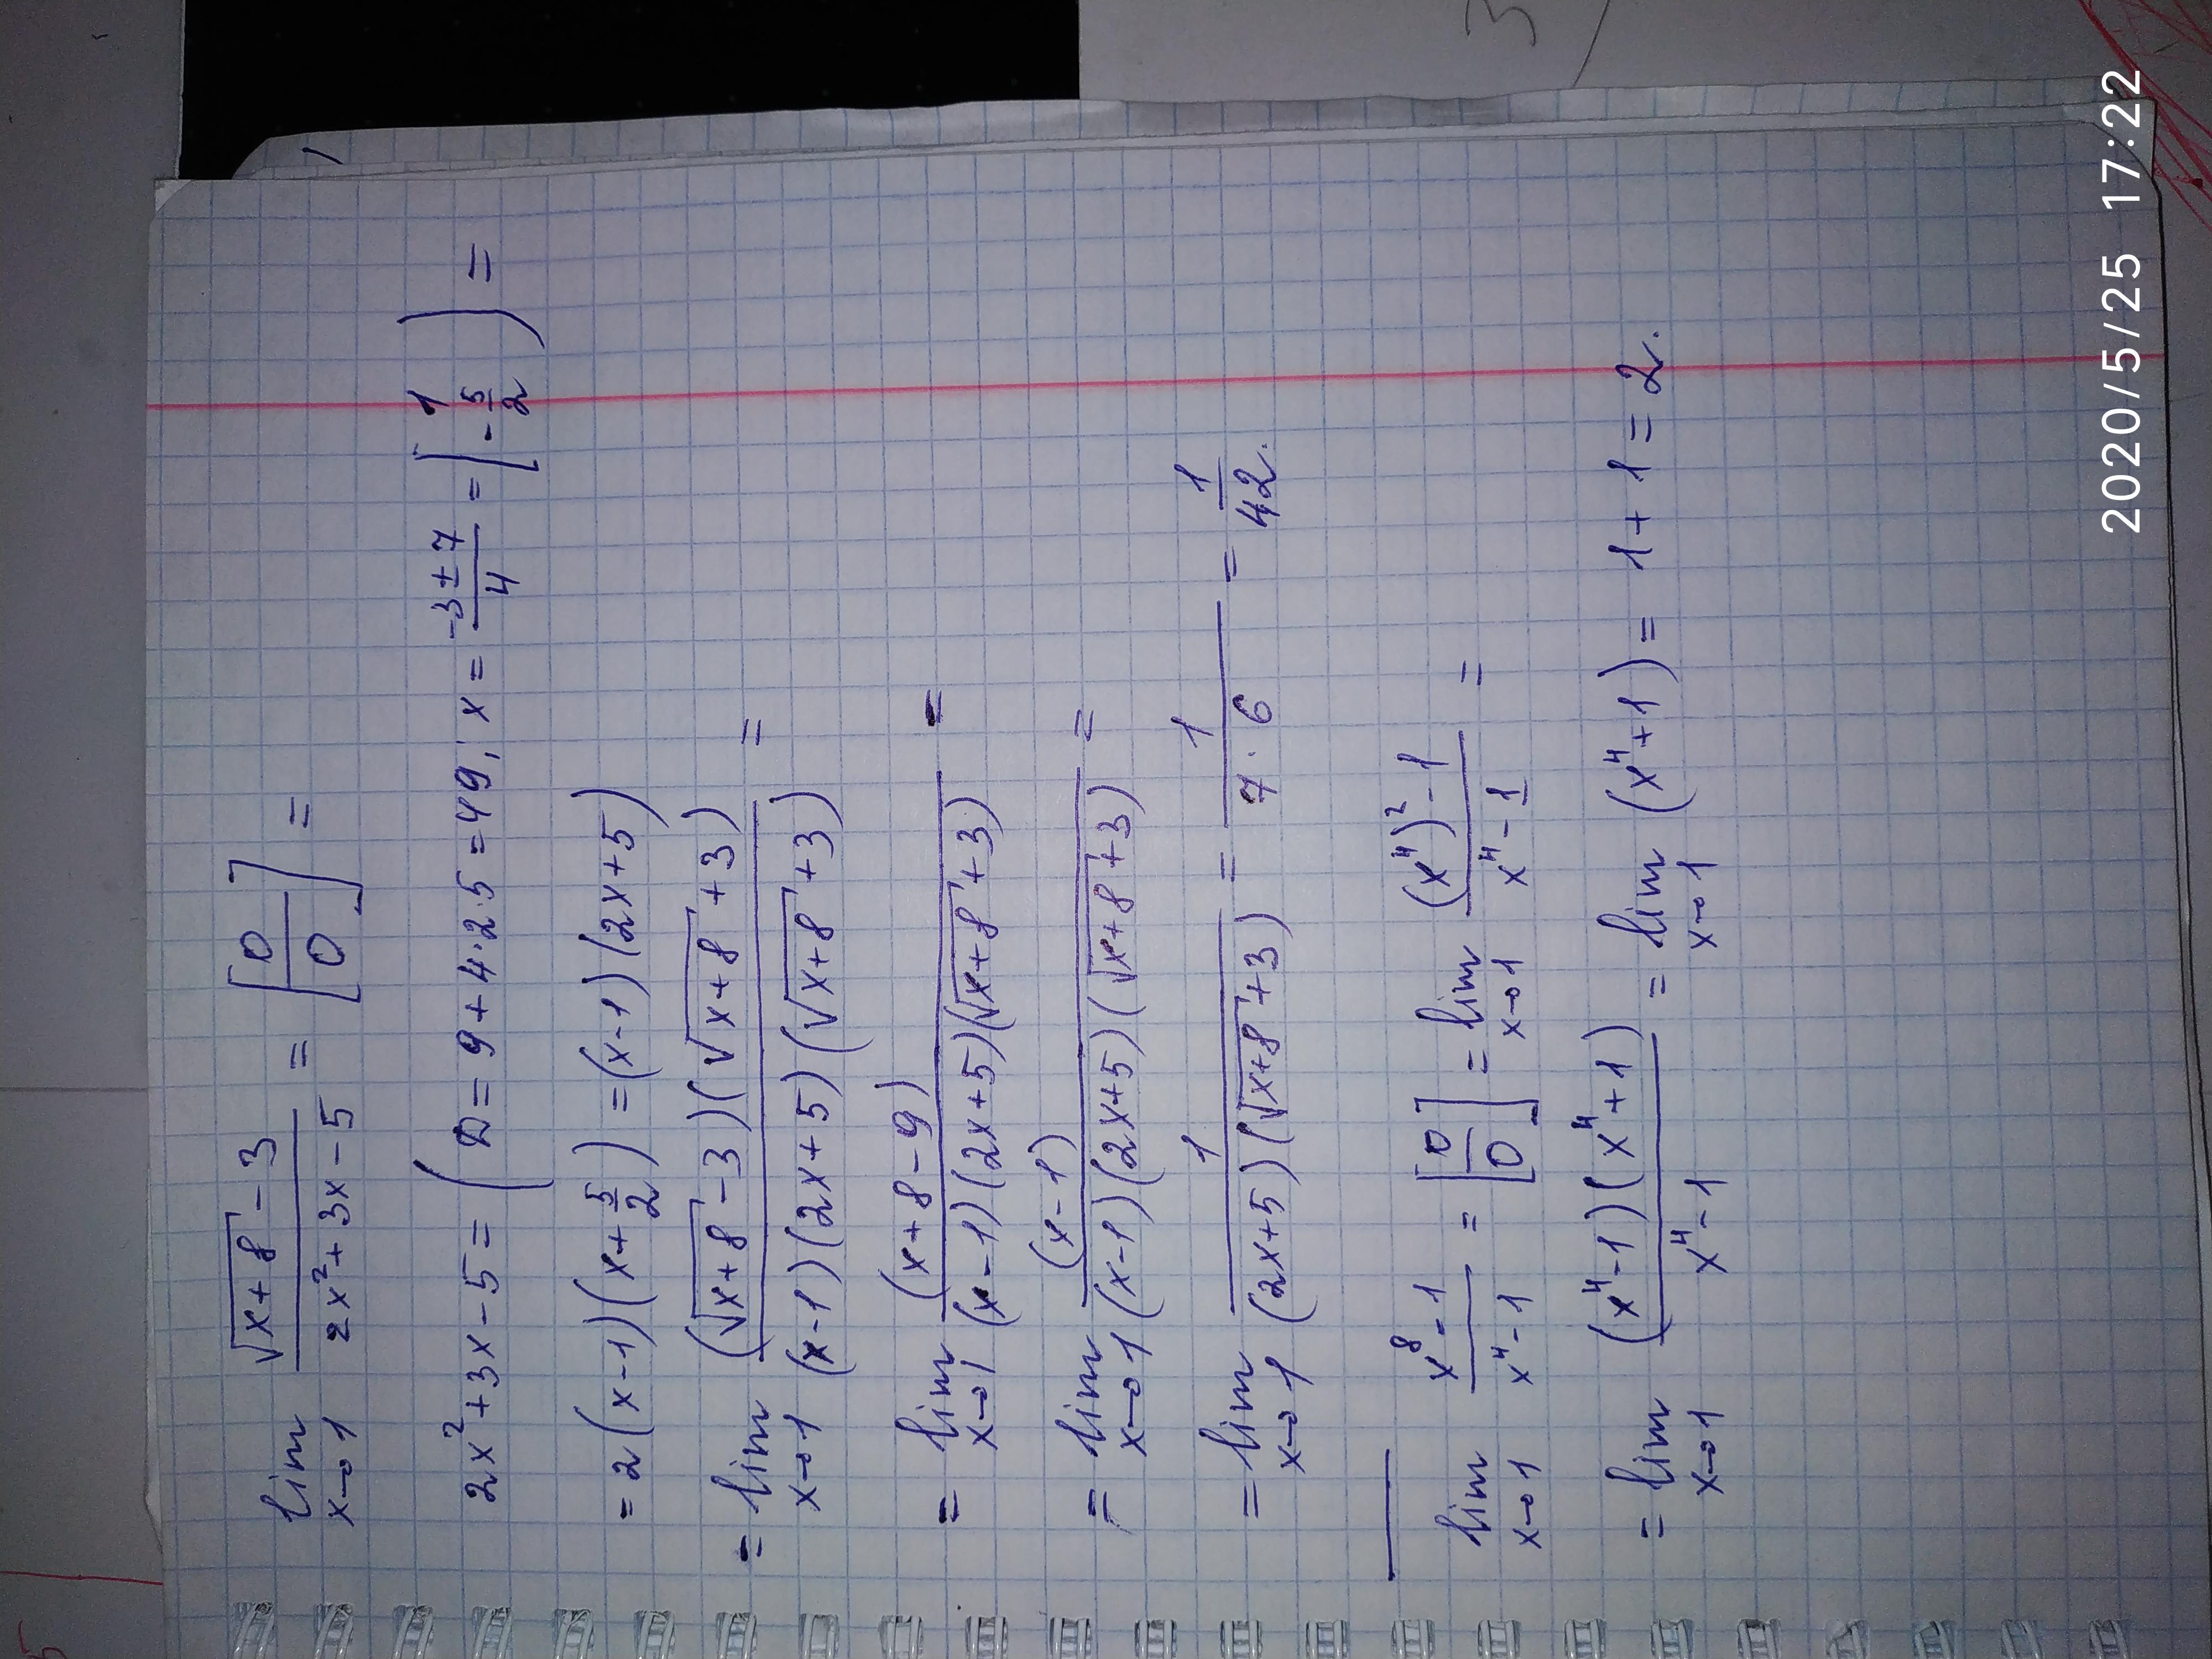 lim x→1 (√(x+8) - 3)/(2x² + 3x - 5) = [0/0] =
2x² + 3x - 5 = (D = 9 + 4·2·5 = 49; x = (-3 ± 7)/4 = [1; -5/2) =
= 2(x-1)(x + 5/2) = (x-1)(2x+5)
= lim x→1 ((√(x+8) - 3)(√(x+8) + 3))/((x-1)(2x+5)(√(x+8) + 3)) =
= lim x→1 (x+8-9)/((x-1)(2x+5)(√(x+8) + 3)) =
= lim x→1 (x-1)/((x-1)(2x+5)(√(x+8) + 3)) =
= lim x→1 1/((2x+5)(√(x+8) + 3)) = 1/(7·6) = 1/42.
lim x→1 (x⁸ - 1)/(x⁴ - 1) = [0/0] = lim x→1 ((x⁴)² - 1)/(x⁴ - 1) =
= lim x→1 ((x⁴ - 1)(x⁴ + 1))/(x⁴ - 1) = lim x→1 (x⁴ + 1) = 1 + 1 = 2.
2020/5/25 17:22